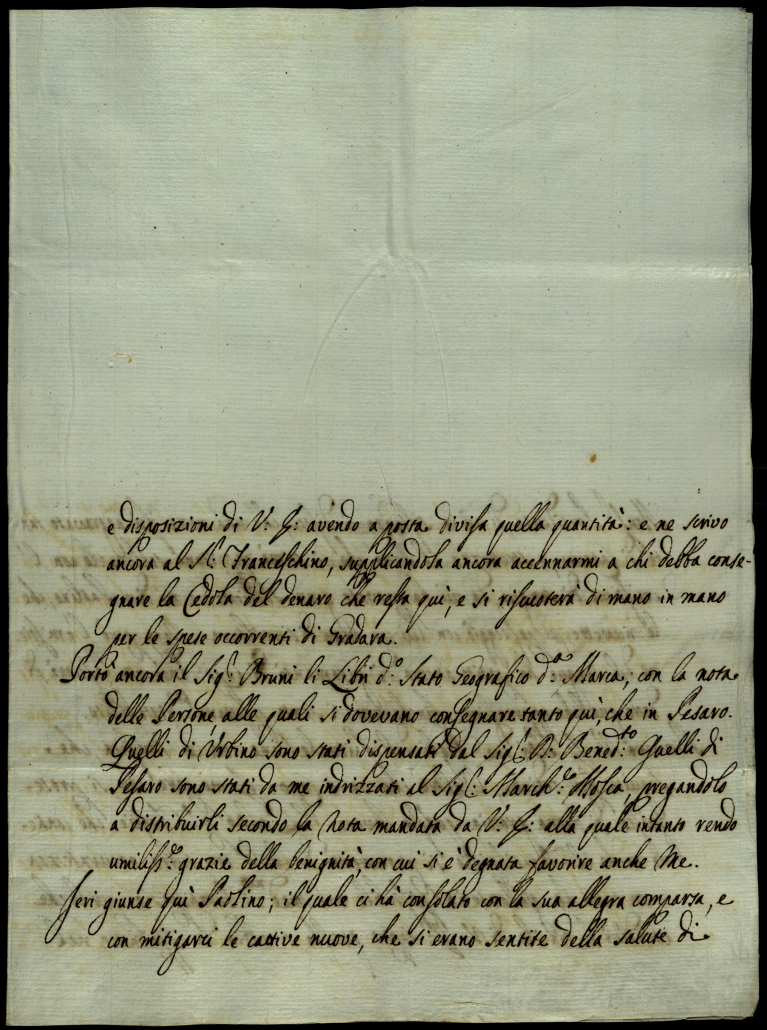 e disposizioni di V: S: avendo a posta divisa quella quantità: e ne scrivo
ancora al Sr: Franceschino, supplicandola ancora accennarmi a chi debba conse-
gnare la Cedola del denaro che resta quì, e si riscuoterà di mano in mano
per le spese occorrenti di Gradara.
Portò ancora il Sigr: Bruni li Libri d:o Stato Geografico d:a Marca; con la nota
delle Persone, alle quali si dovevano consegnare tanto quì, che in Pesaro.
Quelli di Urbino sono stati dispensati dal Sigr: Bened:to Quelli di
Pesaro sono stati da me indrizzati al Sigr: March:e Mosca, pregandolo
a distribuirli secondo la nota mandata da V: S: alla quale intanto rendo
umiliss:e grazie della benignità, con cui si è degnata favorire anche Me.
Jeri giunse quì Paolino; il quale ci hà consolato con la sua allegra comparsa, e
con mitigarci le cattive nuove, che si erano sentite della salute di